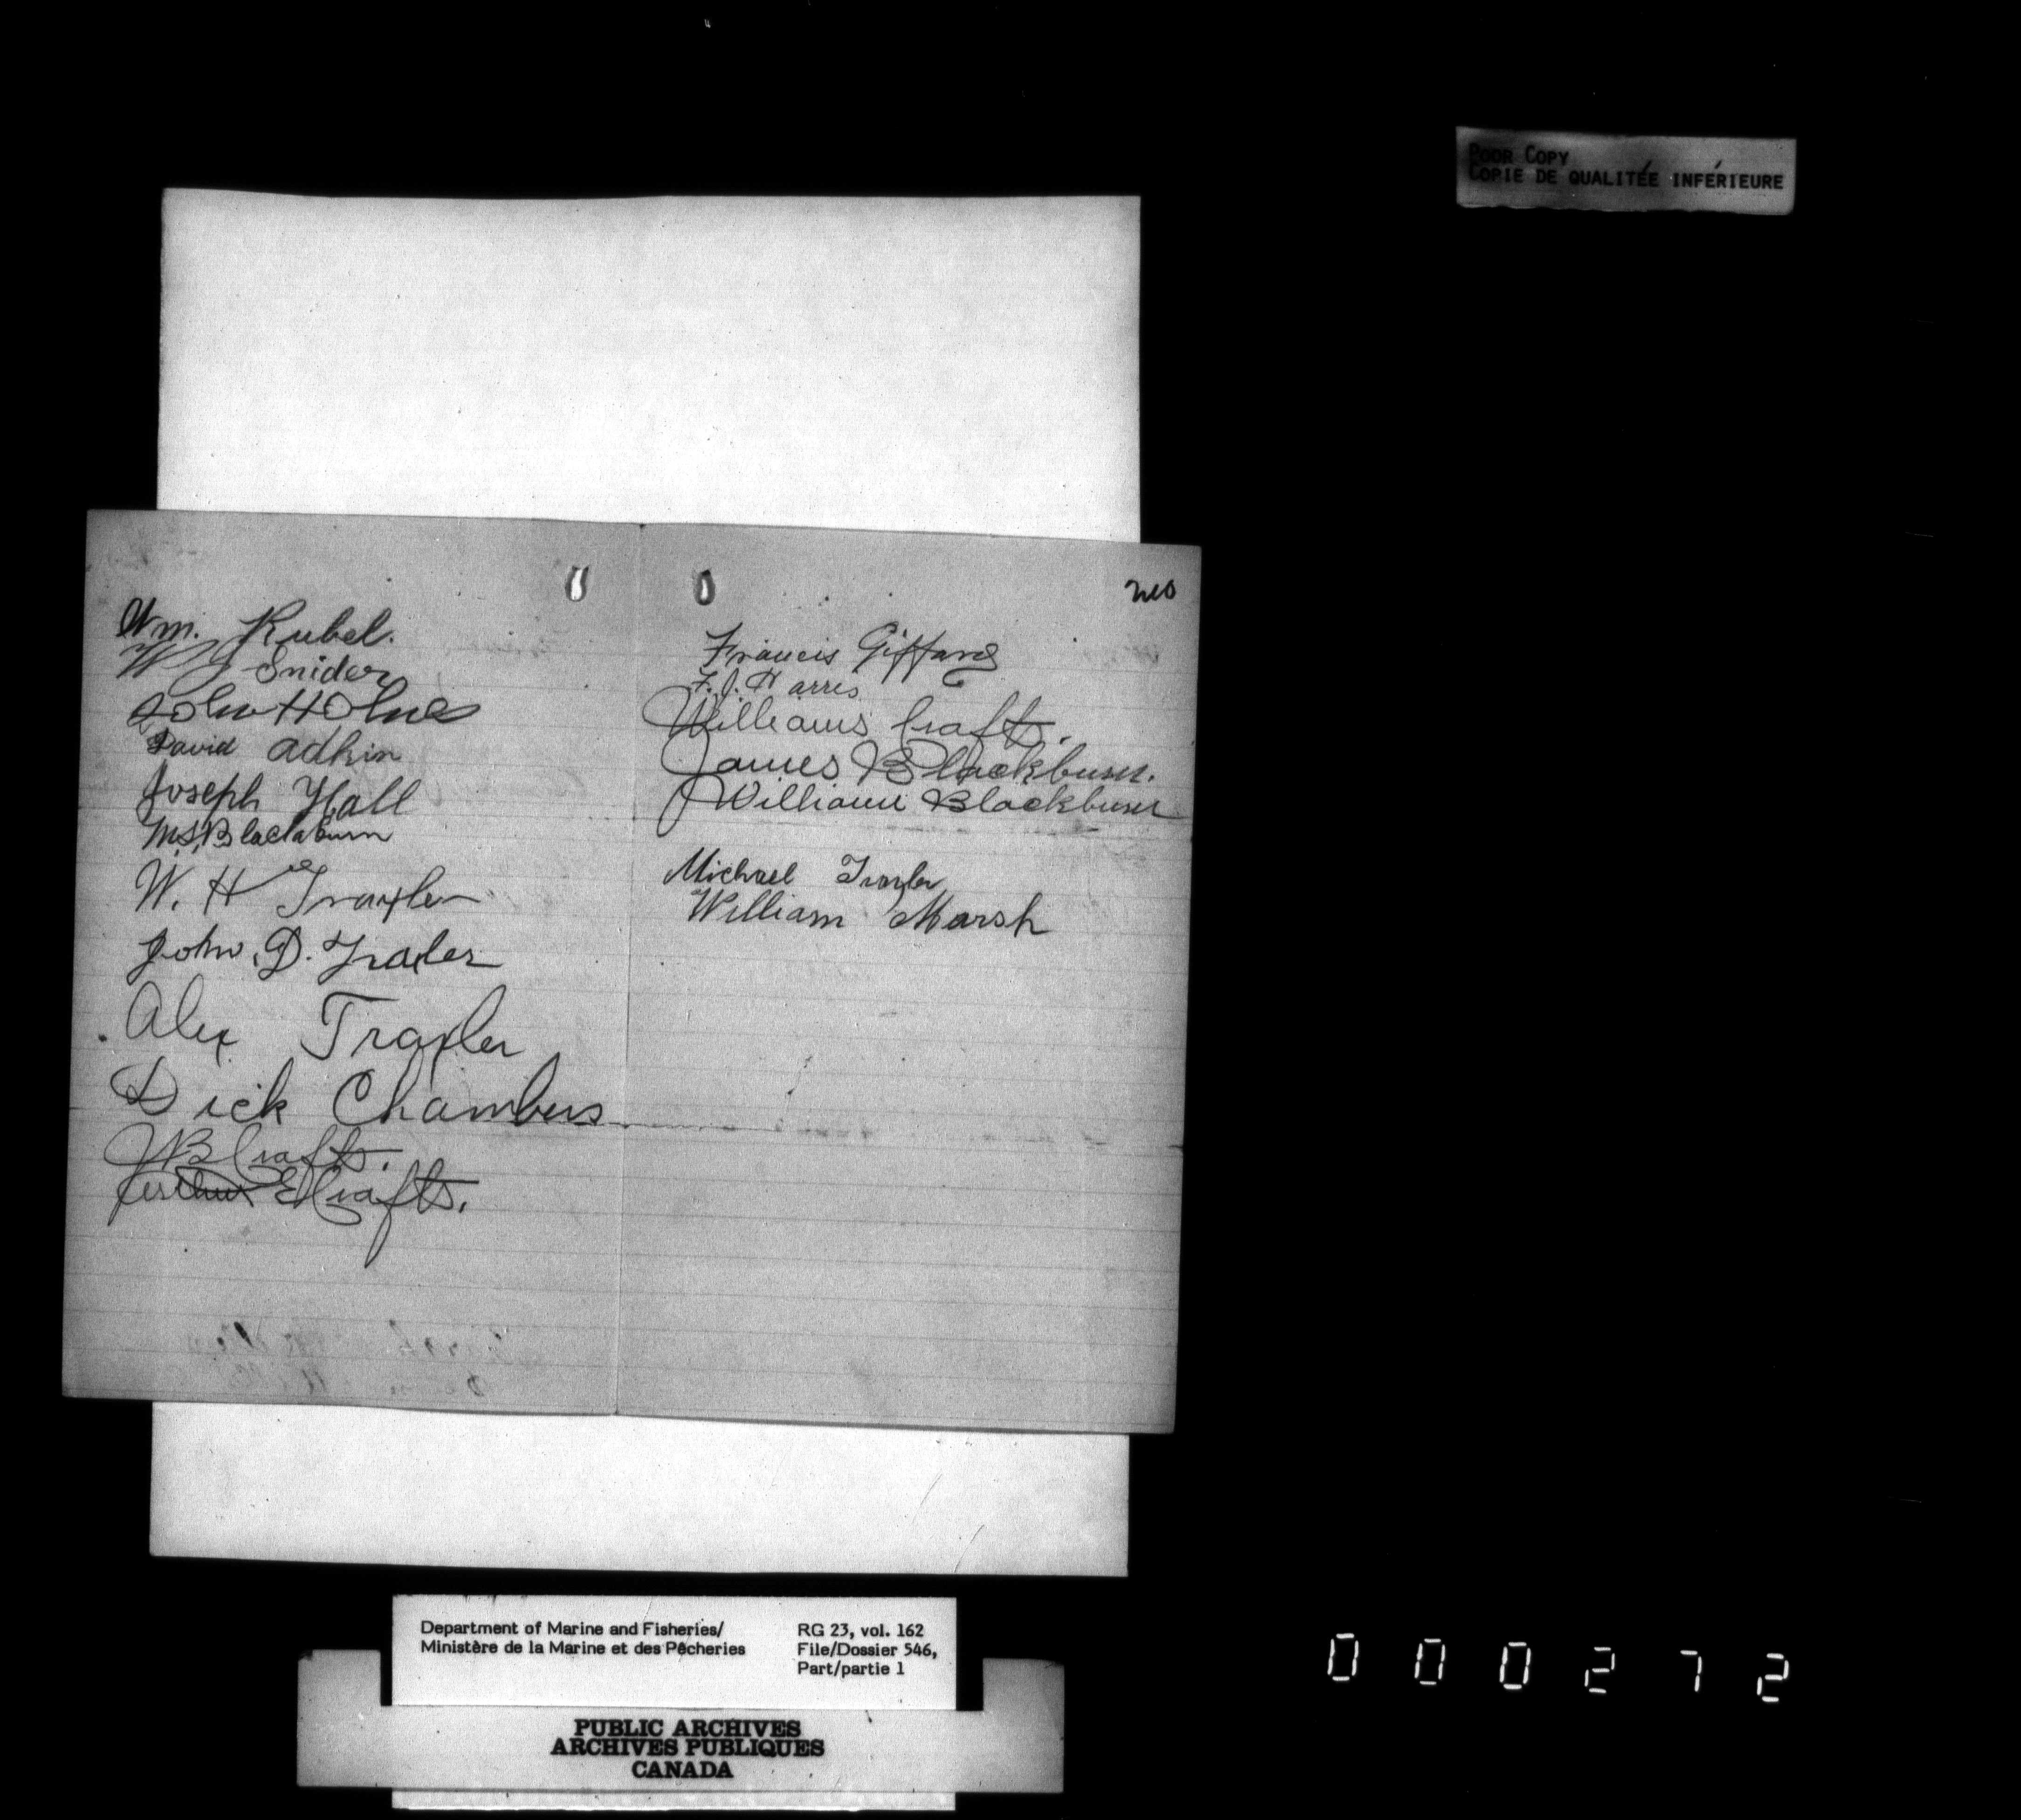 POOR COPY
COPIE DE QUALITÉE INFÉRIEURE
Wm. Kubel.
W J Snider
John Holmes
David Adkin
Joseph Hall
M.S. Blackburn
W. H Traxler
John. D. Traxler
Alex Traxler
Dick Chambers
W B Crafts.
Arthur E Crafts.
Francis Giffard
F. J. Harris
William Crafts.
James Blackburn.
William Blackburn
Michael Traxler
William Marsh
Department of Marine and Fisheries/
Ministère de la Marine et des Pêcheries
RG 23, vol. 162
File/Dossier 546,
Part/partie 1
PUBLIC ARCHIVES
ARCHIVES PUBLIQUES
CANADA
000272